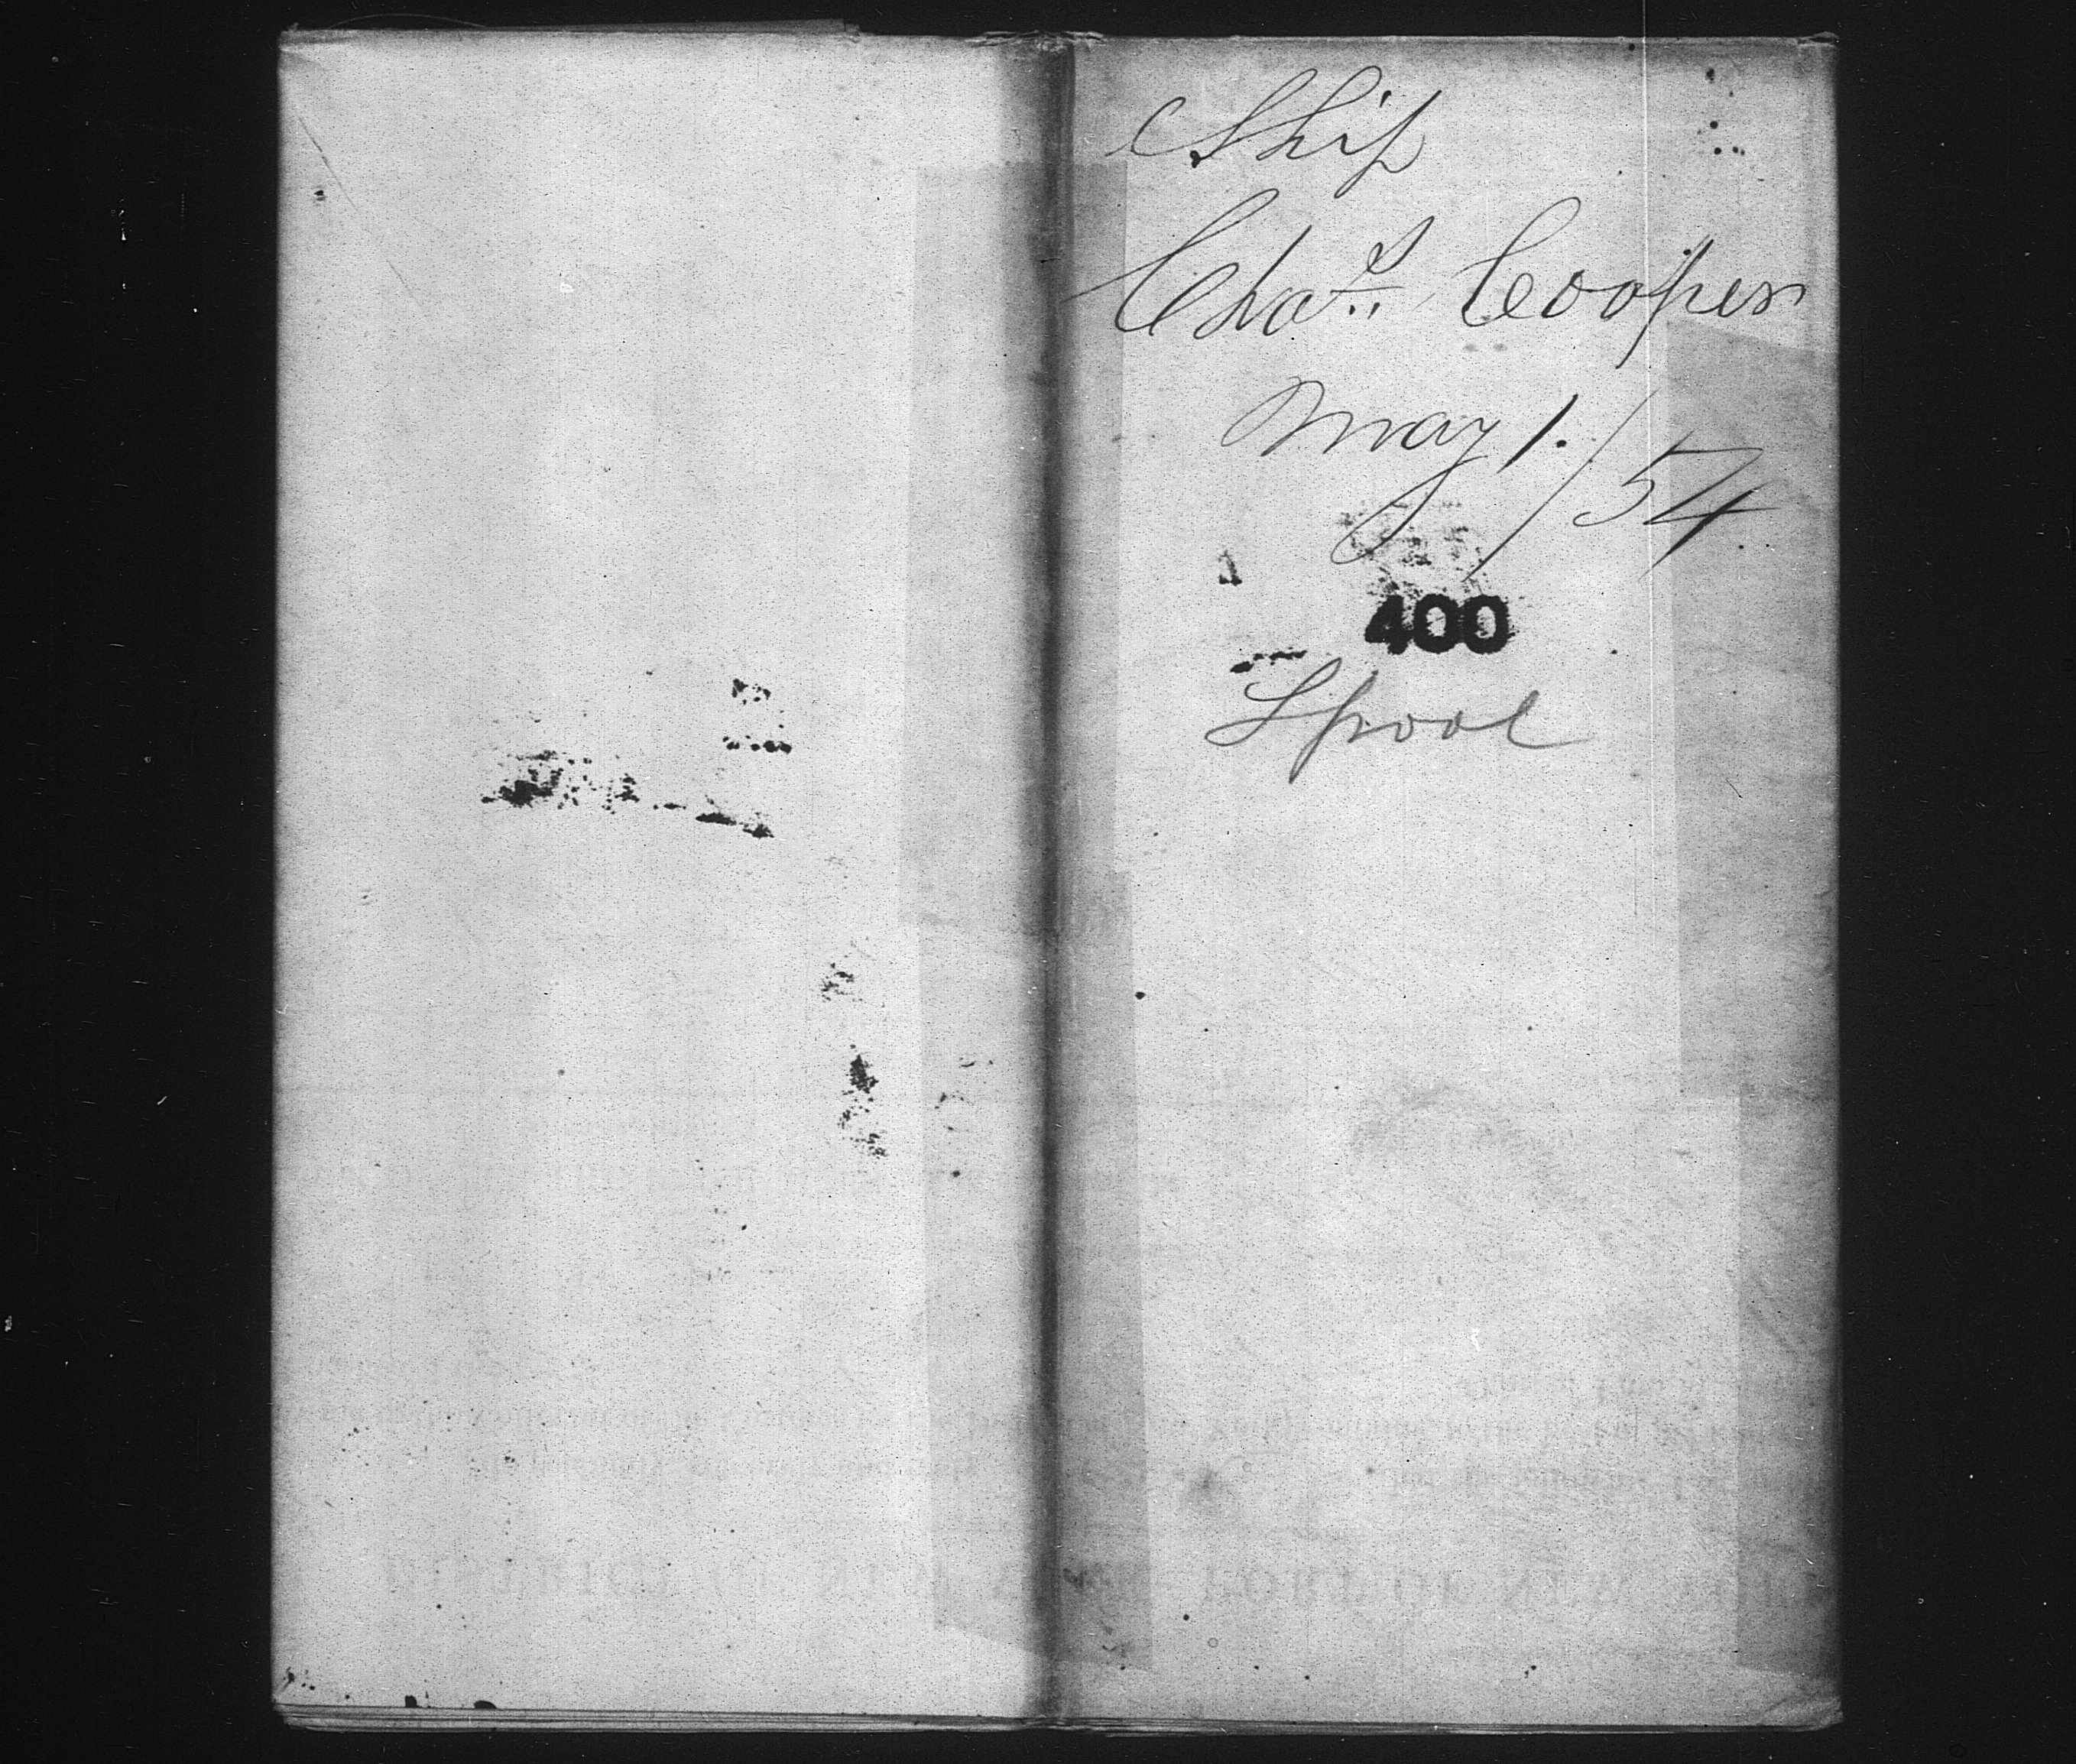 Ship
Chas. Cooper
May 1./54
400
Lpool